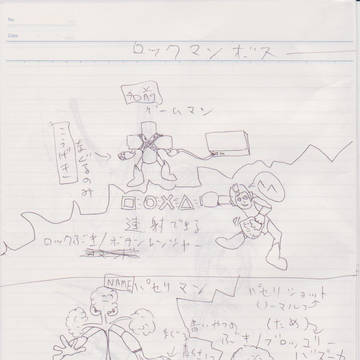 No.
Date
ロックマンボス
名前
ゲームマン
こうげき
なぐるのみ
□○X△
連射できる
ロックぶき/ボタンレンジャー
NAME パセリマン
パセリショット
(ノーマル)
(ため)
ブロッコリー
バズーカ